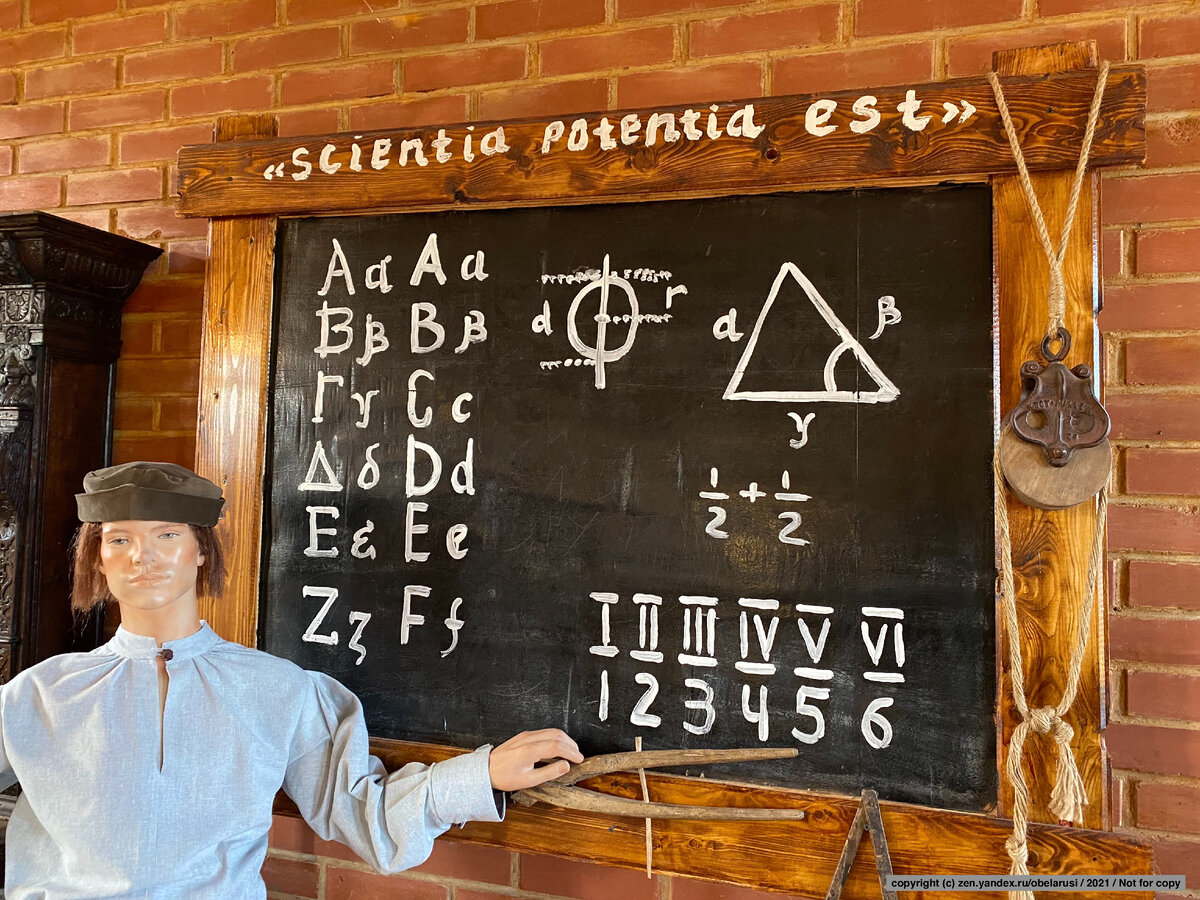 «scientia potentia est»
Α α A a
Β β B β
Γ γ C c
Δ δ D d
Ε ε E e
Ζ ζ F f
d r
α β
γ
1/2 + 1/2
I II III IV V VI
1 2 3 4 5 6
copyright (c) zen.yandex.ru/obelarusi / 2021 / Not for copy